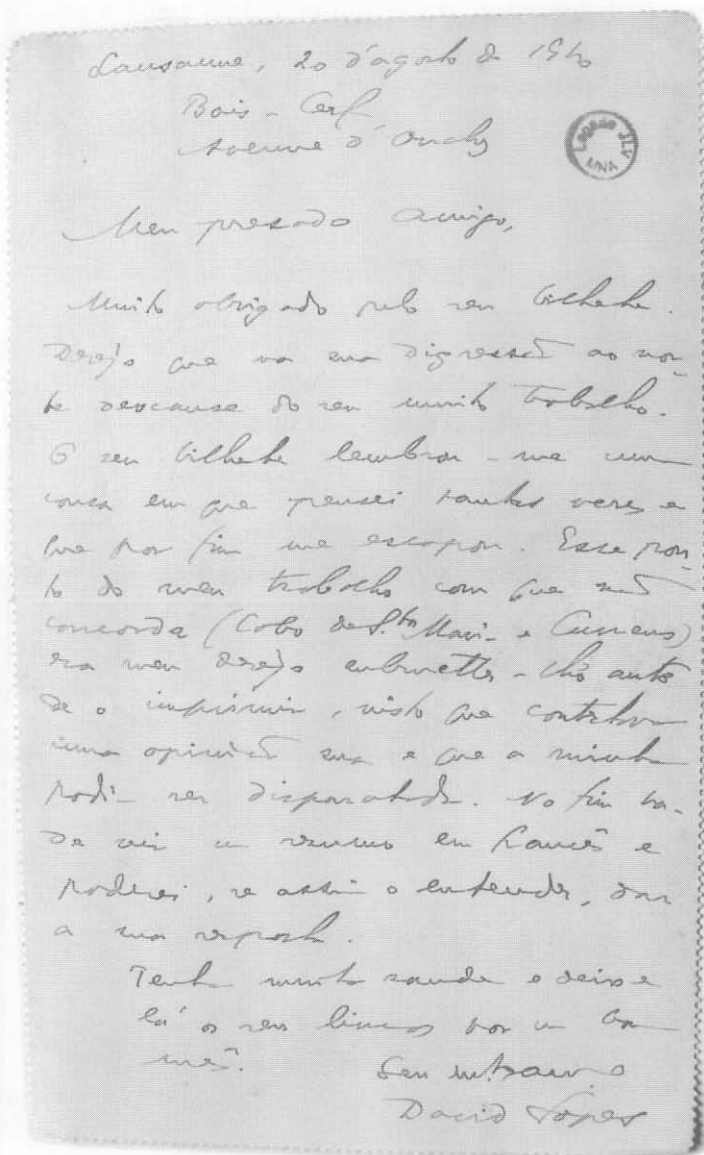 Lausanne, 20 d'agosto de 1910
Bois-Cerf
Avenue d'Ouchy
Legado JLV
MNA
Meu presado amigo,
Muito obrigado pelo seu bilhete.
Desejo que na sua digressão ao nor-
te descanse do seu muito trabalho.
O seu bilhete lembrou-me uma
cousa em que pensei tantas vezes e
que por fim me escapou. Esse pon-
to do meu trabalho com que não
concorda (Cabo de S.ta Maria e Cuneus)
era meu desejo submetter-lho antes
de o imprimir, visto que contraria
uma opinião sua e que a minha
podia ser disparatada. No fim ha-
de vir um resumo em francês e
poderei, se assim o entender, dar
a sua resposta.
Tenha muita saude e deixe
lá os seus livros por um bom
mês.
Seu
David Lopes